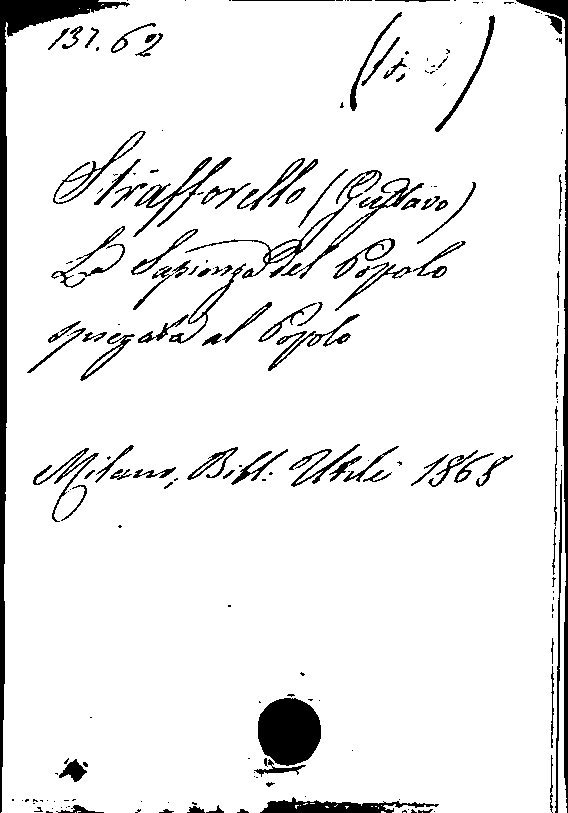 137.62
Strafforello (Gustavo)
La Sapienza del Popolo
spiegata al Popolo
Milano, Bibl. Utile 1868